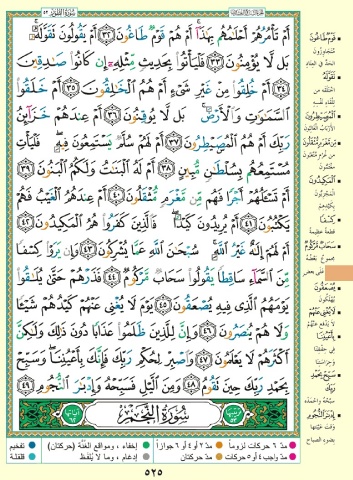 سُورَةُ الطُّورِ ٥٢
أَمْ تَأْمُرُهُمْ أَحْلَٰمُهُم بِهَٰذَآ ۚ أَمْ هُمْ قَوْمٌ طَاغُونَ ٣٢ أَمْ يَقُولُونَ تَقَوَّلَهُۥ ۚ
بَل لَّا يُؤْمِنُونَ ٣٣ فَلْيَأْتُوا۟ بِحَدِيثٍ مِّثْلِهِۦٓ إِن كَانُوا۟ صَٰدِقِينَ
٣٤ أَمْ خُلِقُوا۟ مِنْ غَيْرِ شَىْءٍ أَمْ هُمُ ٱلْخَٰلِقُونَ ٣٥ أَمْ خَلَقُوا۟
ٱلسَّمَٰوَٰتِ وَٱلْأَرْضَ ۚ بَل لَّا يُوقِنُونَ ٣٦ أَمْ عِندَهُمْ خَزَآئِنُ
رَبِّكَ أَمْ هُمُ ٱلْمُصَۣيْطِرُونَ ٣٧ أَمْ لَهُمْ سُلَّمٌ يَسْتَمِعُونَ فِيهِ ۖ فَلْيَأْتِ
مُسْتَمِعُهُم بِسُلْطَٰنٍ مُّبِينٍ ٣٨ أَمْ لَهُ ٱلْبَنَٰتُ وَلَكُمُ ٱلْبَنُونَ ٣٩
أَمْ تَسْـَٔلُهُمْ أَجْرًا فَهُم مِّن مَّغْرَمٍ مُّثْقَلُونَ ٤٠ أَمْ عِندَهُمُ ٱلْغَيْبُ فَهُمْ
يَكْتُبُونَ ٤١ أَمْ يُرِيدُونَ كَيْدًا ۖ فَٱلَّذِينَ كَفَرُوا۟ هُمُ ٱلْمَكِيدُونَ ٤٢
أَمْ لَهُمْ إِلَٰهٌ غَيْرُ ٱللَّهِ ۚ سُبْحَٰنَ ٱللَّهِ عَمَّا يُشْرِكُونَ ٤٣ وَإِن يَرَوْا۟ كِسْفًا
مِّنَ ٱلسَّمَآءِ سَاقِطًا يَقُولُوا۟ سَحَابٌ مَّرْكُومٌ ٤٤ فَذَرْهُمْ حَتَّىٰ يُلَٰقُوا۟
يَوْمَهُمُ ٱلَّذِى فِيهِ يُصْعَقُونَ ٤٥ يَوْمَ لَا يُغْنِى عَنْهُمْ كَيْدُهُمْ شَيْـًٔا
وَلَا هُمْ يُنصَرُونَ ٤٦ وَإِنَّ لِلَّذِينَ ظَلَمُوا۟ عَذَابًا دُونَ ذَٰلِكَ وَلَٰكِنَّ
أَكْثَرَهُمْ لَا يَعْلَمُونَ ٤٧ وَٱصْبِرْ لِحُكْمِ رَبِّكَ فَإِنَّكَ بِأَعْيُنِنَا ۖ وَسَبِّحْ
بِحَمْدِ رَبِّكَ حِينَ تَقُومُ ٤٨ وَمِنَ ٱلَّيْلِ فَسَبِّحْهُ وَإِدْبَٰرَ ٱلنُّجُومِ ٤٩
سُورَةُ النَّجْمِ
قَوْمٌ طَاغُونَ
تَقَوَّلَهُ
الْمُصَيْطِرُونَ
الْمَكِيدُونَ
كِسْفًا
قطعة عظيمة
سَحَابٌ مَّرْكُومٌ
على بعض
يُصْعَقُونَ
يهلكون
لَا يُغْنِي عَنْهُمْ
بِأَعْيُنِنَا
سَبِّحْ بِحَمْدِ رَبِّكَ
إِدْبَارَ النُّجُومِ
مدّ ٦ حركات لزوماً
مدّ ٢ أو ٤ أو ٦ جوازاً
إخفاء ، ومواقع الغُنَّة (حركتان)
تفخيم
مدّ واجب ٤ أو ٥ حركات
مدّ حركتان
إدغام ، وما لا يُلفَظ
قلقلة
٥٢٥